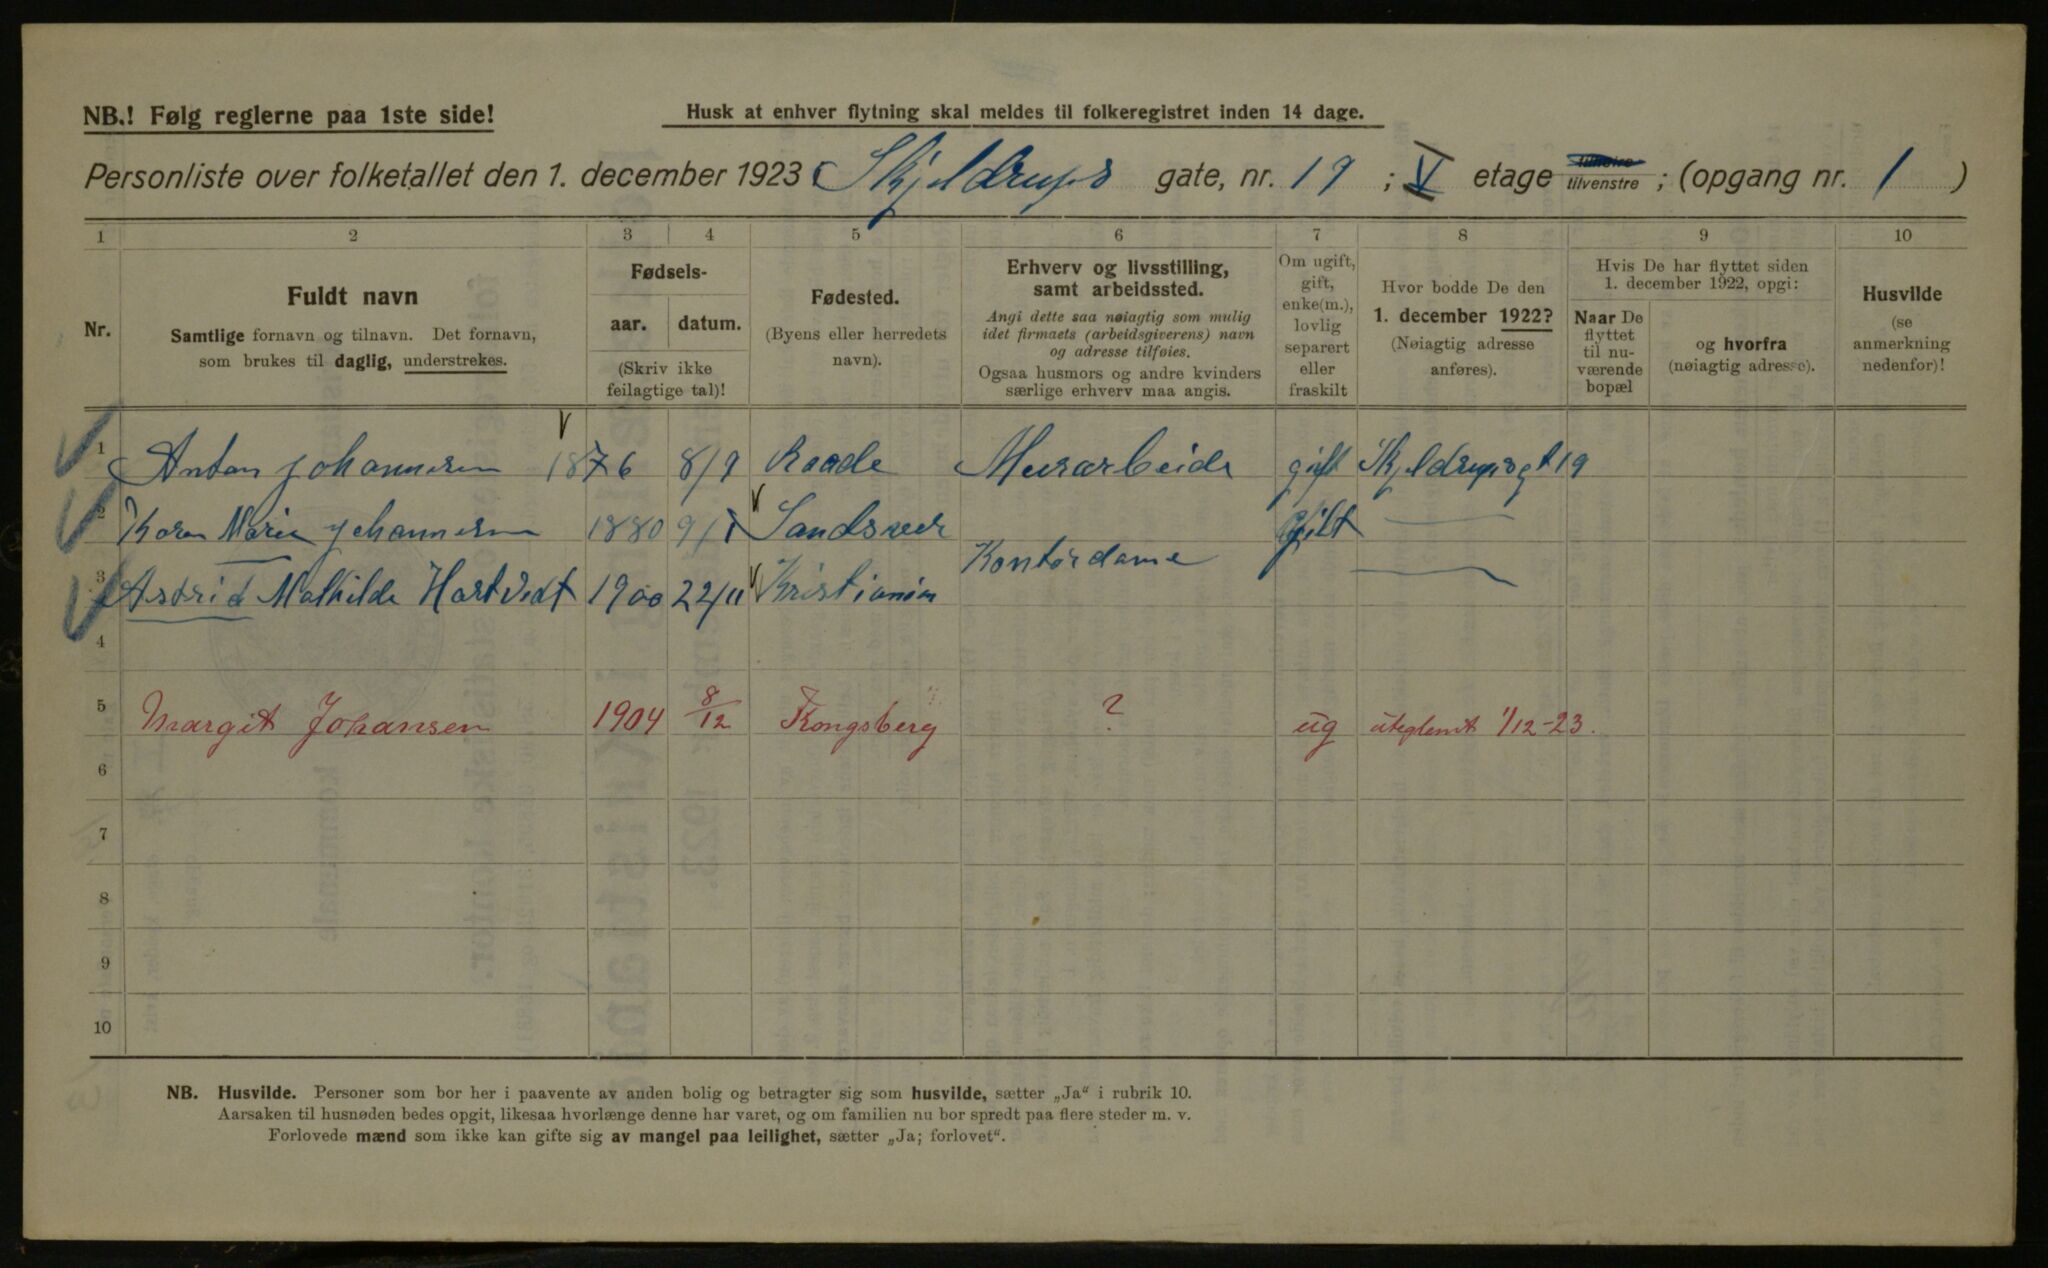 NB.! Følg reglerne paa 1ste side!
Husk at enhver flytning skal meldes til folkeregistret inden 14 dage.
Personliste over folketallet den 1. december 1923 Skjeldrups gate, nr. 19 ; V etage tilhøire tilvenstre ; (opgang nr. 1 )
1 2 3 4 5 6 7 8 9 10
Nr.
Fuldt navn
Samtlige fornavn og tilnavn. Det fornavn,
som brukes til daglig, understrekes.
Fødsels-
aar. datum.
(Skriv ikke
feilagtige tal)!
Fødested.
(Byens eller herredets
navn).
Erhverv og livsstilling,
samt arbeidssted.
Angi dette saa nøiagtig som mulig
idet firmaets (arbeidsgiverens) navn
og adresse tilføies.
Ogsaa husmors og andre kvinders
særlige erhverv maa angis.
Om ugift,
gift,
enke(m.),
lovlig
separert
eller
fraskilt
Hvor bodde De den
1. december 1922?
(Nøiagtig adresse
anføres).
Hvis De har flyttet siden
1. december 1922, opgi:
Naar De
flyttet
til nu-
værende
bopæl
og hvorfra
(nøiagtig adresse).
Husvilde
(se
anmerkning
nedenfor)!
1 Anton Johannesen 1876 8/9 Raade Murarbeide gift Skjeldrupsgt 19
2 Karen Marie Johannesen 1880 9/1 Sandsver Gift —
3 Astrid Mathilde Hartvedt 1900 22/11 Kristiania Kontordame —
4
5 Margit Johansen 1904 8/12 Kongsberg ? ug uteglemt 1/12-23.
6
7
8
9
10
NB. Husvilde. Personer som bor her i paavente av anden bolig og betragter sig som husvilde, sætter „Ja“ i rubrik 10.
Aarsaken til husnøden bedes opgit, likesaa hvorlænge denne har varet, og om familien nu bor spredt paa flere steder m. v.
Forlovede mænd som ikke kan gifte sig av mangel paa leilighet, sætter „Ja; forlovet“.